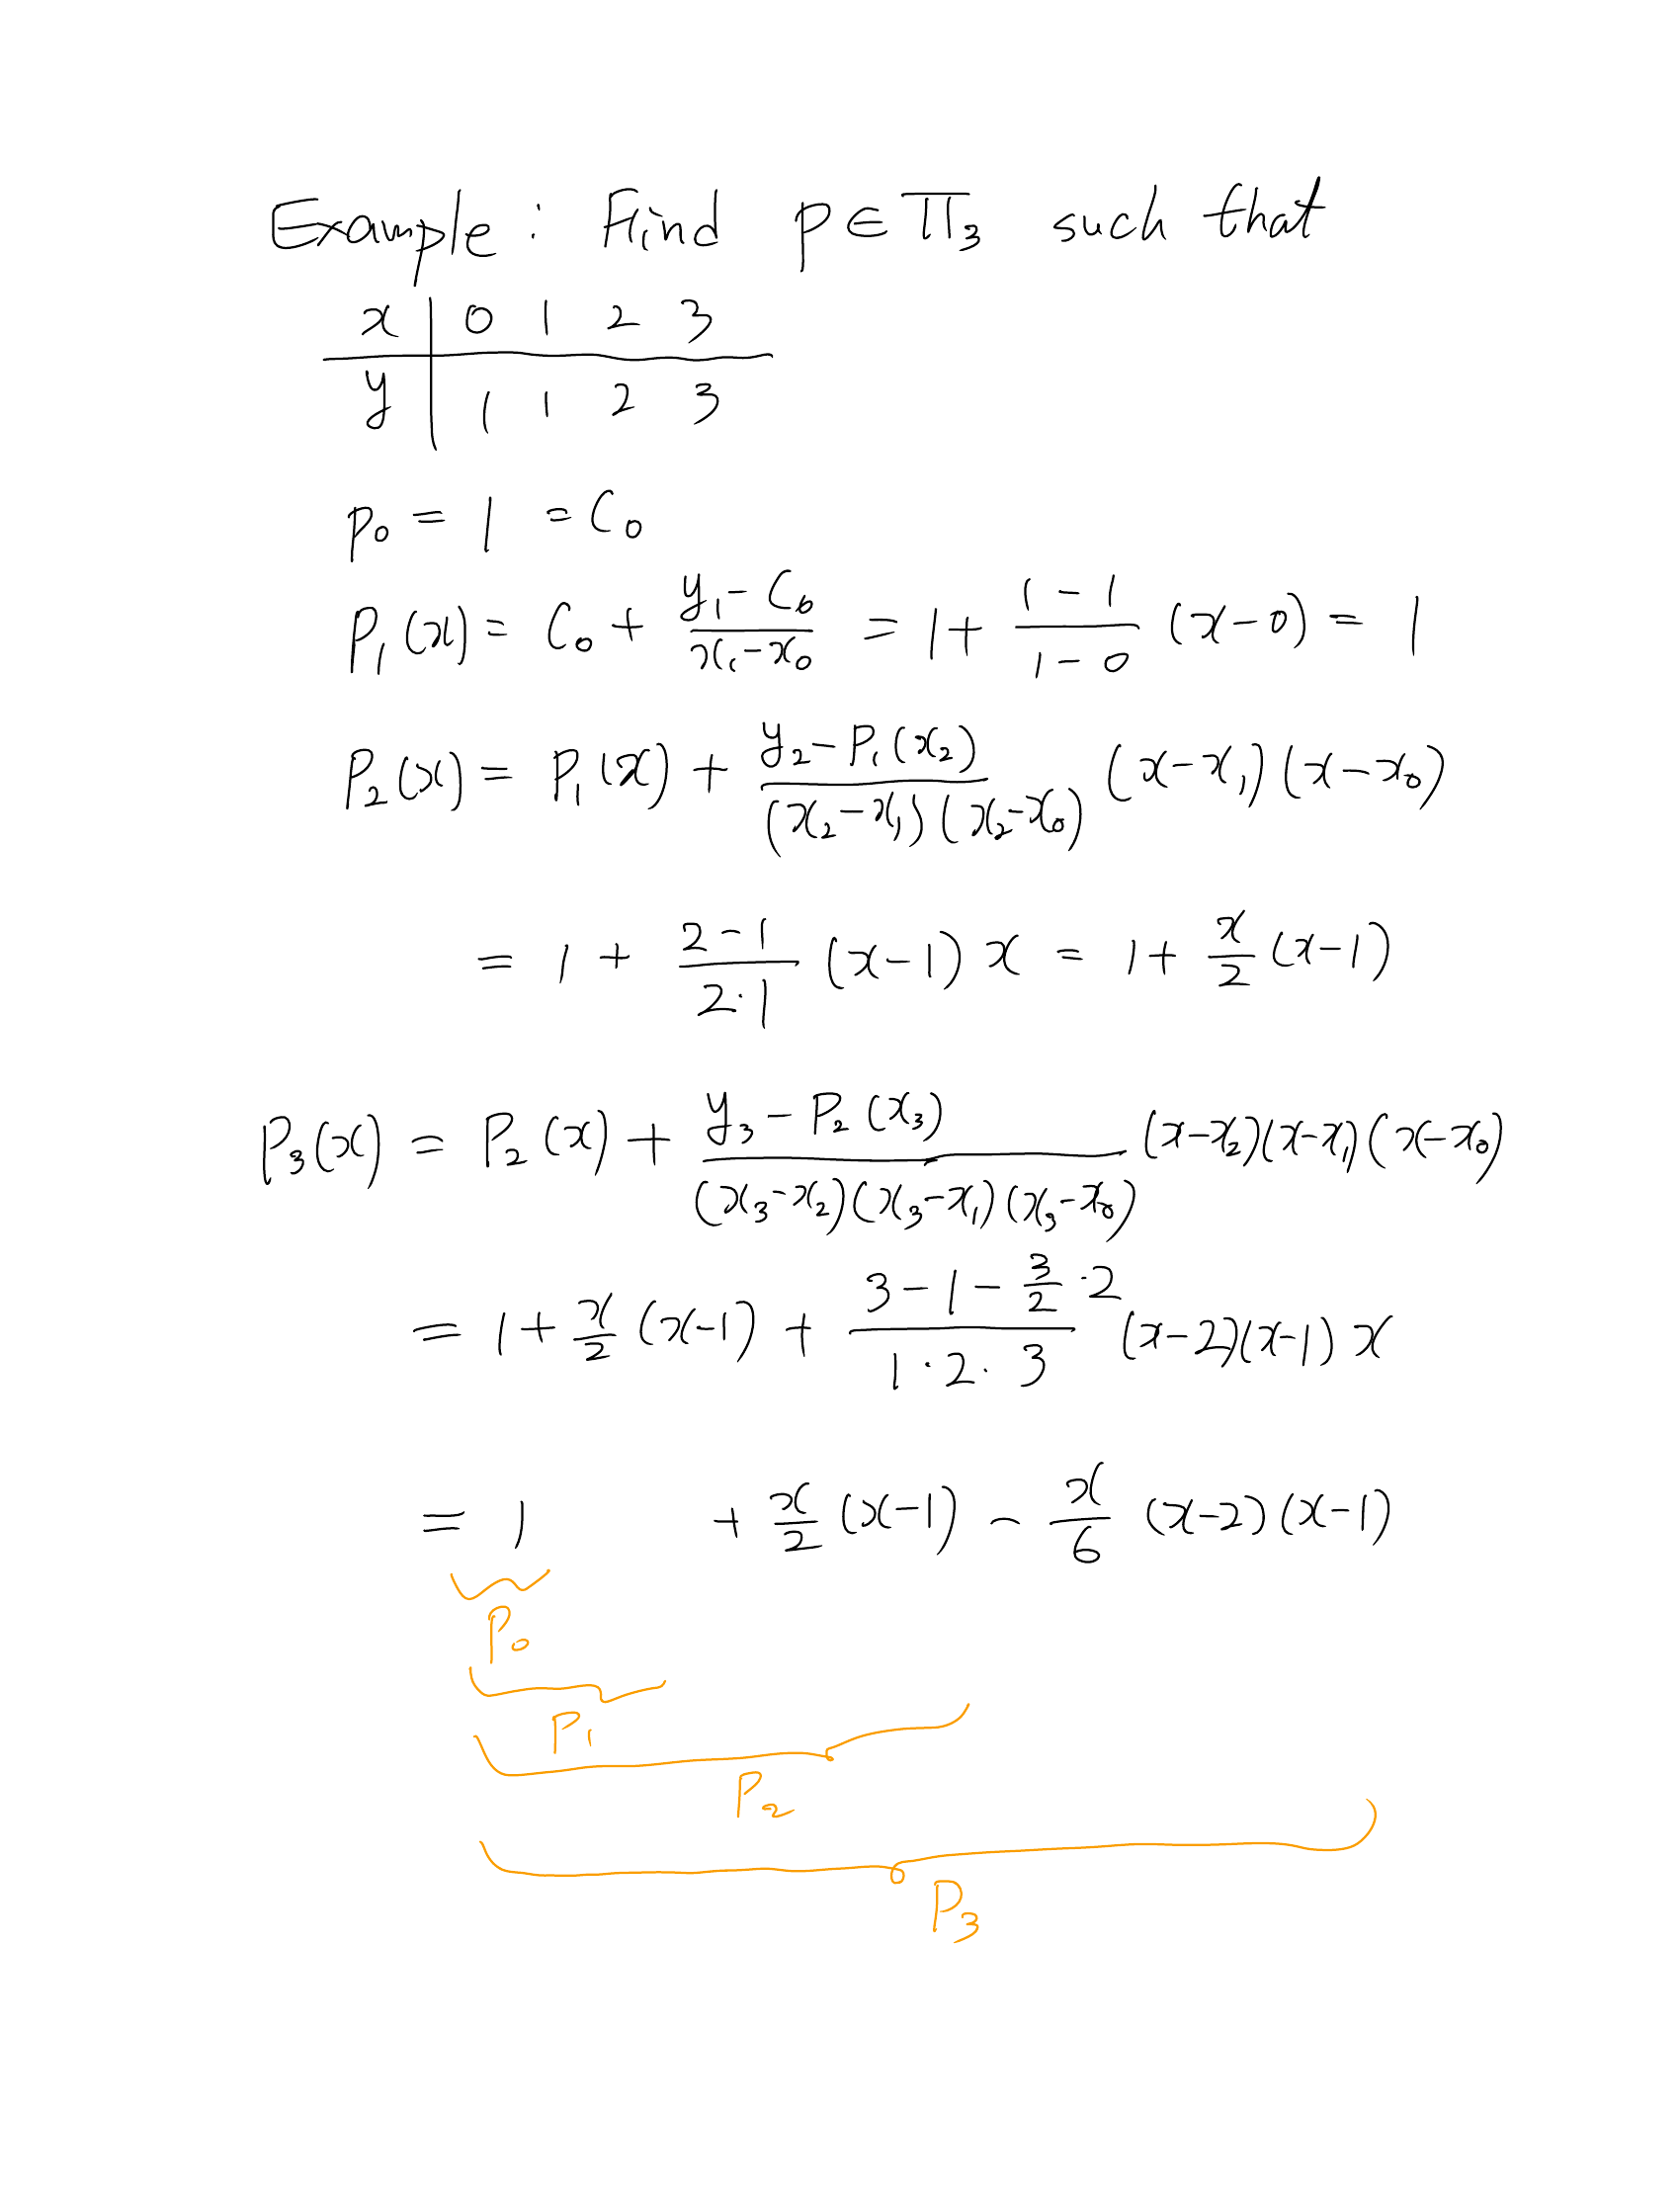 Example : Find p ∈ Π₃ such that
x | 0 1 2 3
y | 1 1 2 3
p₀ = 1 = C₀
P₁(x) = C₀ + (y₁ - C₀)/(x₁ - x₀) = 1 + (1 - 1)/(1 - 0) (x - 0) = 1
P₂(x) = P₁(x) + (y₂ - P₁(x₂))/((x₂ - x₁)(x₂ - x₀)) (x - x₁)(x - x₀)
= 1 + (2 - 1)/(2·1) (x - 1) x = 1 + x/2 (x - 1)
P₃(x) = P₂(x) + (y₃ - P₂(x₃))/((x₃ - x₂)(x₃ - x₁)(x₃ - x₀)) (x - x₂)(x - x₁)(x - x₀)
= 1 + x/2 (x - 1) + (3 - 1 - 3/2 · 2)/(1 · 2 · 3) (x - 2)(x - 1) x
= 1 + x/2 (x - 1) - x/6 (x - 2)(x - 1)
P₀
P₁
P₂
P₃